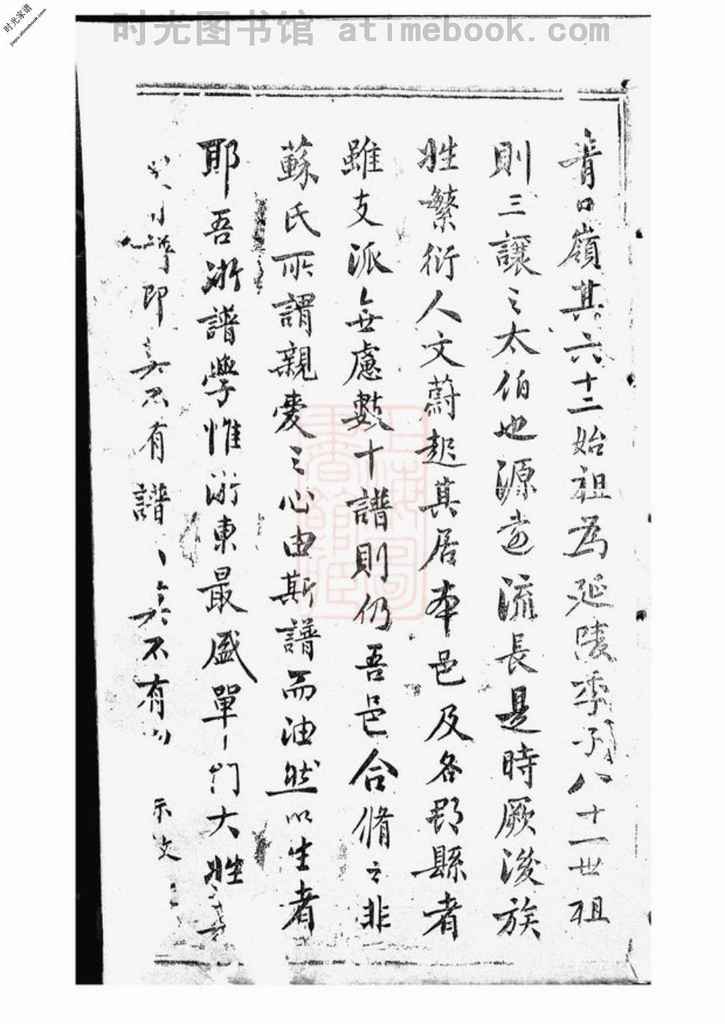 时光图书馆 atimebook.com
时光家谱
青口嶺其六十二始祖為延陵季子八十一世祖
則三讓之太伯也源遠流長是時厥後族
姓繁衍人文蔚起其居本邑及各郡縣者
雖支派無慮數十譜則仍吾邑合脩之非
蘇氏所謂親愛之心由斯譜而油然以生者
耶吾浙譜學惟浙東最盛單門大姓
即莫不有譜莫不有